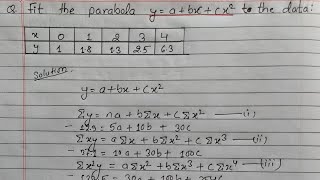 Q Fit the parabola y = a+bx+cx² to the data:
x 0 1 2 3 4
y 1 1.8 1.3 2.5 6.3
Solution.
y = a+bx+cx²
Σy = na + bΣx + cΣx² —(i)
12.9 = 5a + 10b + 30c
Σxy = aΣx + bΣx² + cΣx³ —(ii)
37.1 = 10a + 30b + 100c
Σx²y = aΣx² + bΣx³ + cΣx⁴ —(iii)